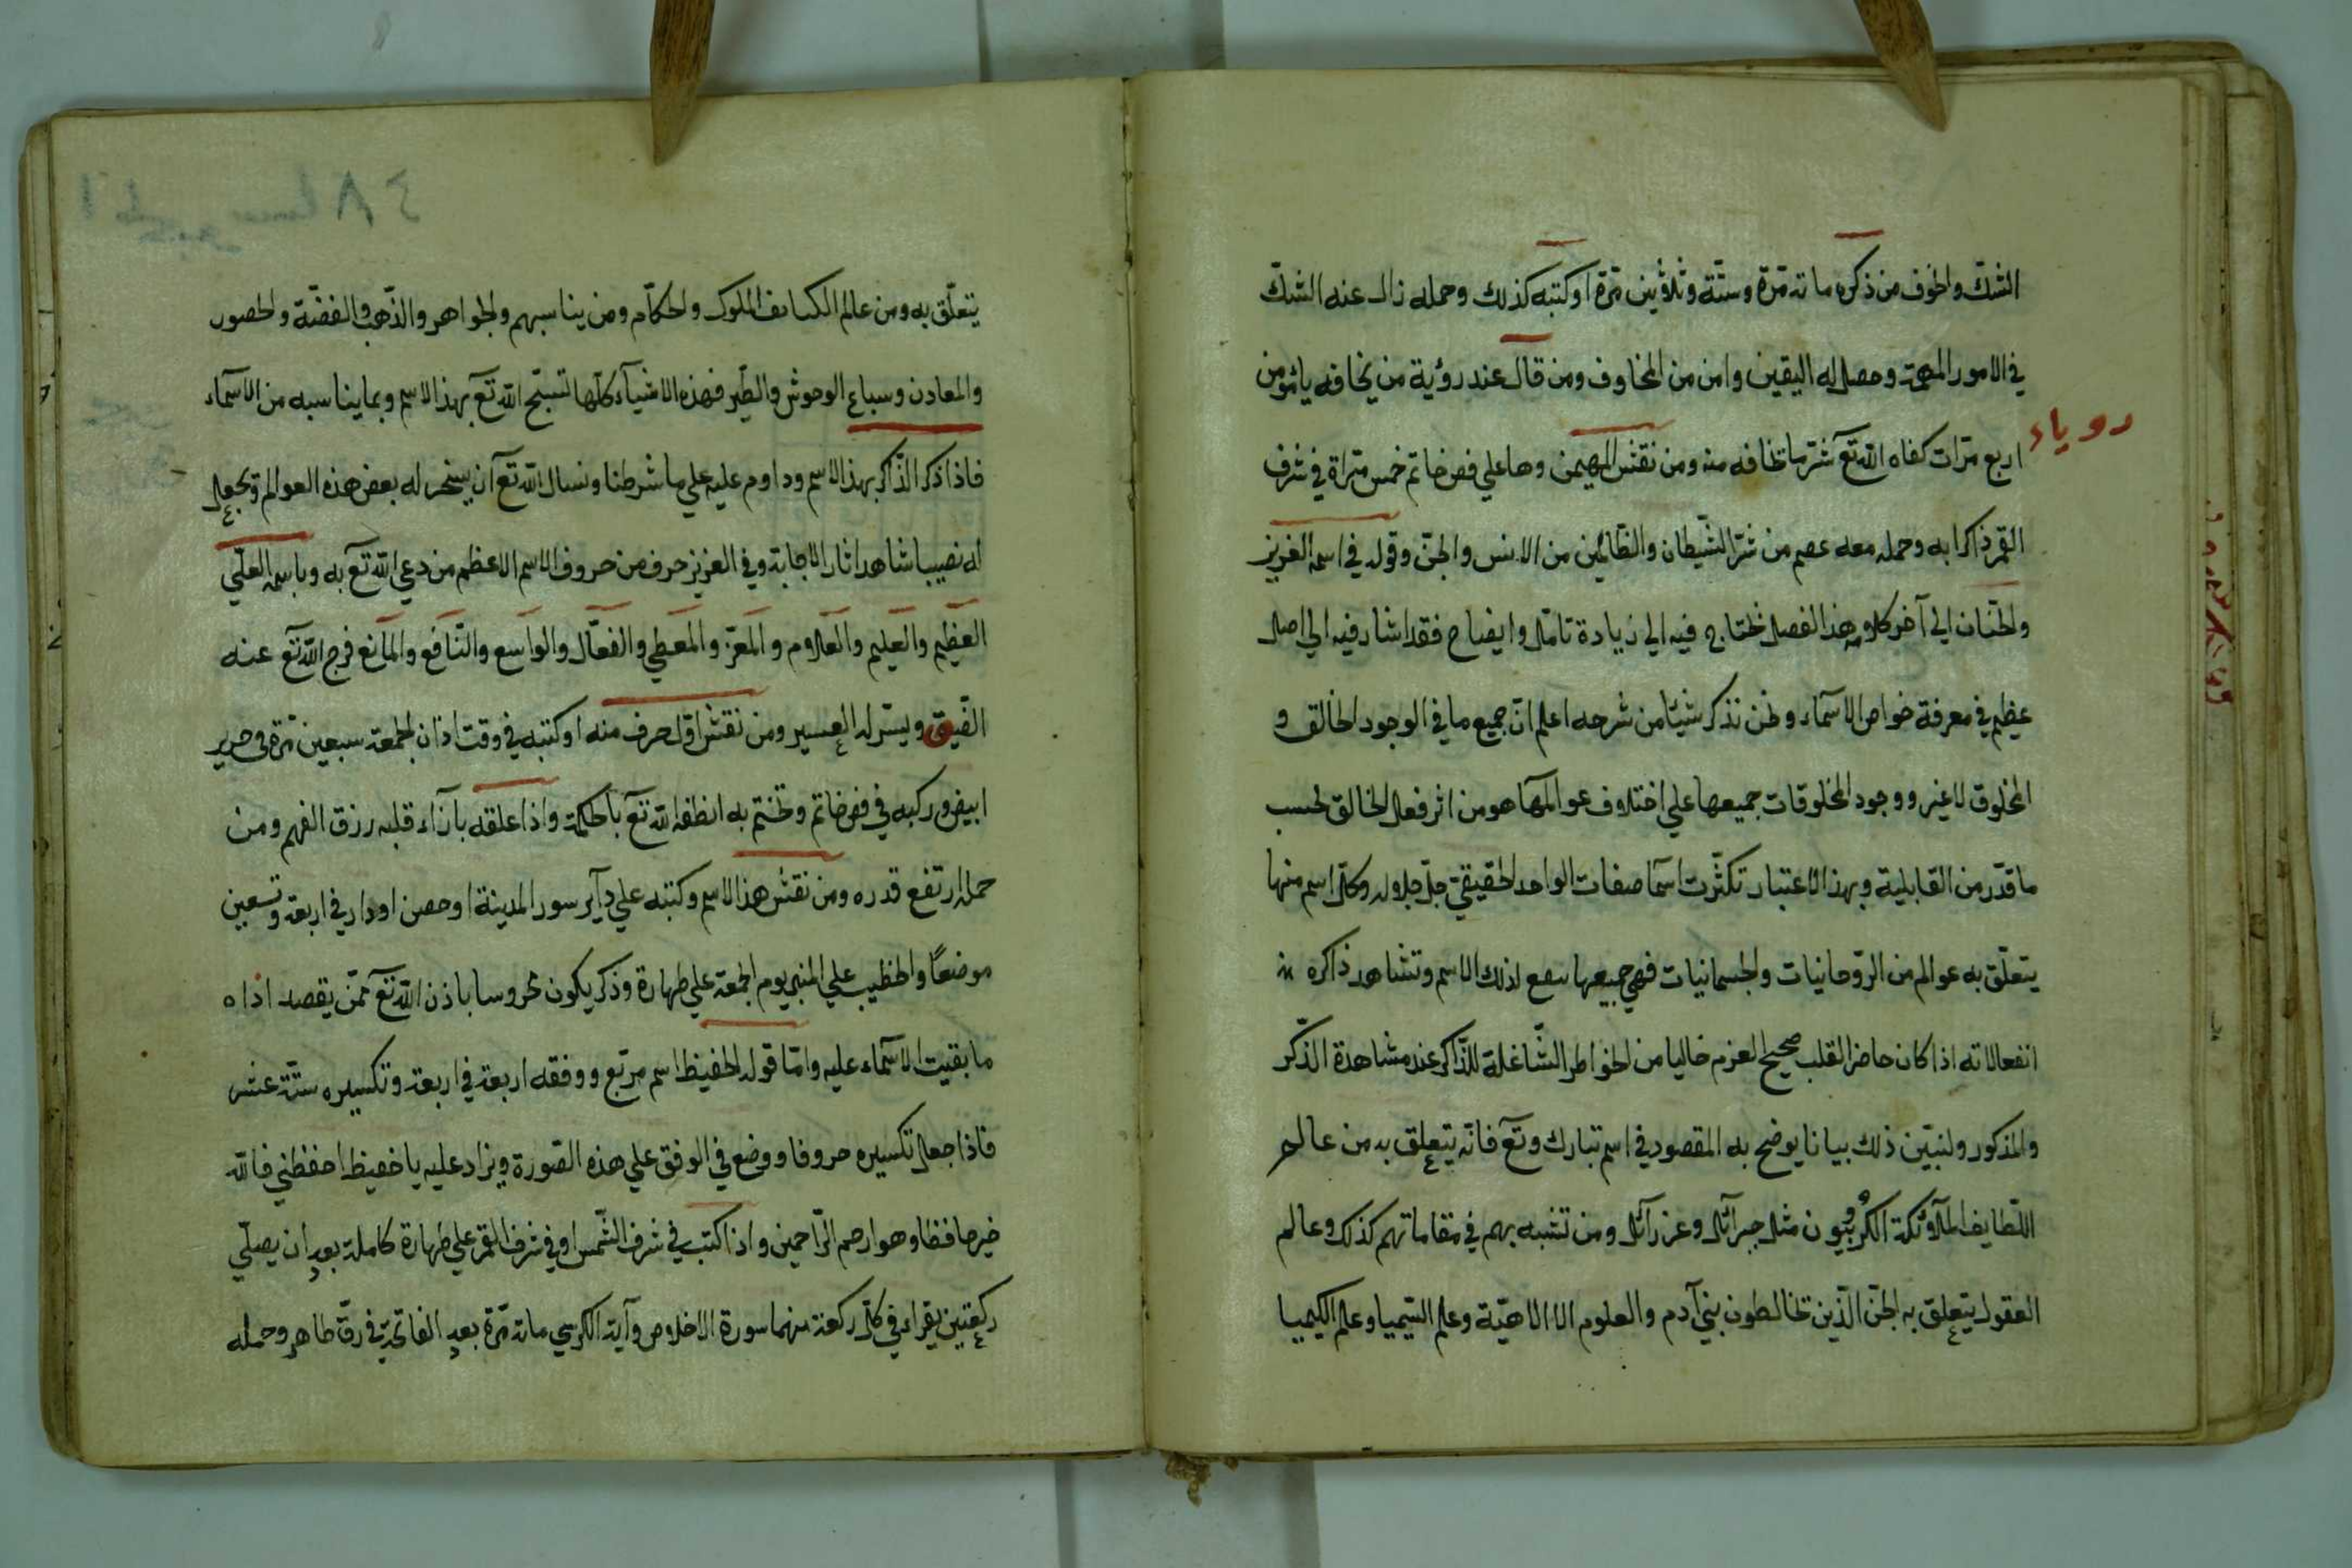 الشكّ والخوف من ذكره مائة مرّة وستّة وثلاثين مرّة او كتبه كذلك وحمله زال عنه الشكّ
في الامور المهمّة وحصل له اليقين وامن من المخاوف ومن قال عند رؤية من يخافه يا مؤمن
روياء
اربع مرّات كفاه الله تع شرّ ما يخافه منه ومن نقش المهيمن وها علي فص خاتم خمس مرّاة في شرف
القمر ذاكرا به وحمله معه عصم من شرّ الشّيطان والظّالمين من الانس والجنّ وقوله في اسمه العزيز
والحنّان الي آخر كلامه هذا الفصل نحتاج فيه الي زيادة تامّل وايضاح فقد اشار فيه الي اصل
عظيم في معرفة خواص الاسماء ونحن نذكر شيئا من شرحه اعلم انّ جميع ما في الوجود الخالق و
المخلوق لا غير ووجود المخلوقات جميعها علي اختلاف عوالمها هو من اثر فعل الخالق بحسب
ما قدّر من القابلية وبهذا الاعتبار تكثّرت اسما صفات الواحد الحقيقيّ جلّ جلاله وكلّ اسم منها
يتعلّق به عوالم من الرّوحانيات والجسمانيات فهي جميعها لذلك الاسم وتشاهد ذاكره
انفعالاته اذا كان حاضر القلب صحيح العزم خاليا من الخواطر الشّاغلة للذّاكر عند مشاهدة الذّكر
والمذكور ولنبيّن ذلك بيانا يوضح به المقصود في اسم تبارك وتع فانّه يتعلق به من عالم
اللّطايف الملآئكة الكرّوبيّون مثل جبرآئل وعزرآئل ومن تشبه بهم في مقاماتهم كذلك وعالم
العقول يتعلق به الجنّ الّذين يخالطون بني آدم والعلوم الالاهيّة وعلم السّيميا وعلم الكيميا
يتعلّق به ومن عالم الكثايف الملوك والحكّام ومن يناسبهم والجواهر والذّهب والفضّة والحصور
والمعادن وسباع الوحوش والطّير فهذه الاشيآء كلّها تسبّح الله تع بهذا الاسم وبما يناسبه من الاسماء
فاذا ذكر الذّاكر بهذا الاسم وداوم عليه علي ما شرطنا ونسال الله تع ان يسخر له بعض هذه العوالم ويجعل
له نصيبا شاهد اثار الاجابة وفي العزيز حرف من حروف الاسم الاعظم من دعي الله تع به وباسمه العليّ
العظيم والعليم والعلام والمعزّ والمعطي والفعّال والواسع والنّافع والمانع فرج الله تع عنه
الضّيق ويسّر له العسير ومن نقش اوّل حرف منه او كتبه في وقت اذان الجمعة سبعين مرّة في حرير
ابيض وركبه في فص خاتم وتختم به انطقه الله تع بالحكمة واذا علقه بآزآء قلبه رزق الفهم ومن
حمله ارتفع قدره ومن نقش هذا الاسم وكتبه علي دآير سور المدينة او حصن او دار في اربعة وتسعين
موضعًا والخطيب علي المنبر يوم الجمعة علي طهارة وذكر يكون محروسا باذن الله تع ممّن يقصد اذاه
ما بقيت الاسماء عليه وامّا قوله الحفيظ اسم مربّع ووفقه اربعة في اربعة وتكسيره ستّة عشر
فاذا جعل تكسيره حروفا ووضع في الوفق علي هذه الصّورة ويزاد عليه يا حفيظ احفظني فالله
خير حافظا وهو ارحم الرّاحمين واذا كتب في شرف الشّمس او في شرف القمر علي طهارة كاملة بعد ان يصلّي
ركعتين يقراء في كلّ ركعة منهما سورة الاخلاص وآية الكرسي مائة مرّة بعد الفاتحة في رقّ طاهر وحمله